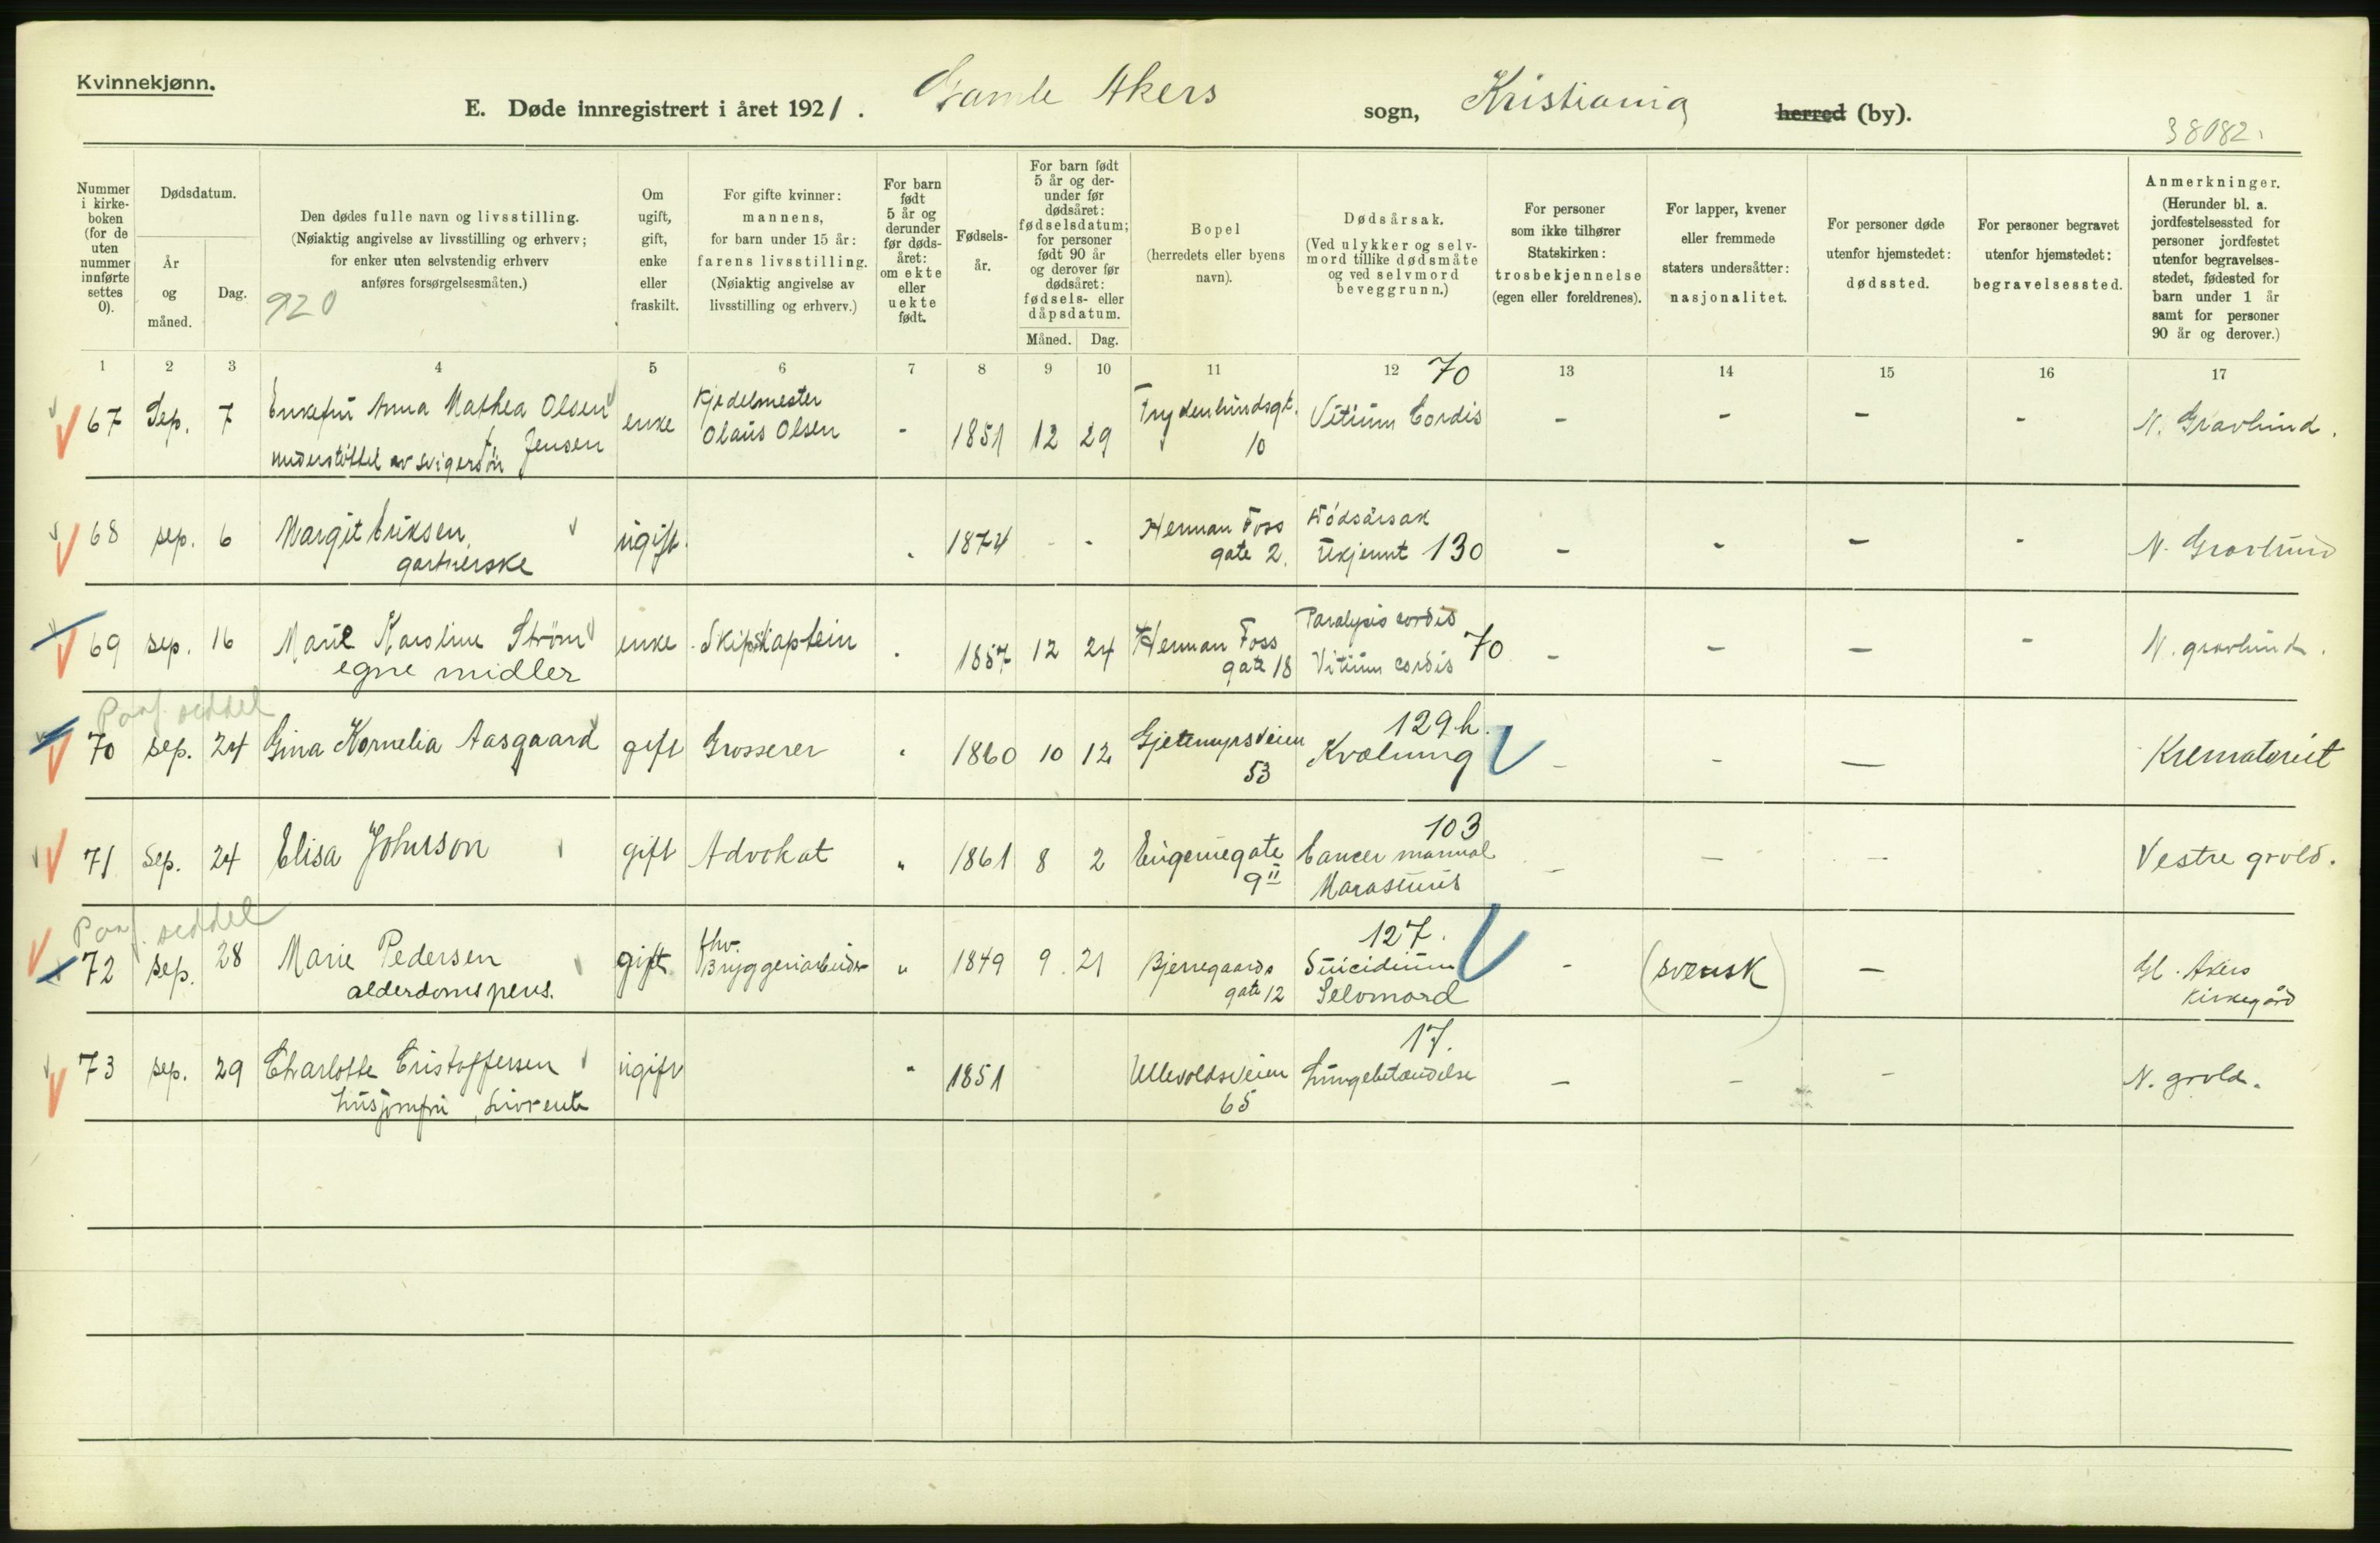 Kvinnekjønn.
E. Døde innregistrert i året 1921. Gamle Akers sogn, Kristiania herred (by).
38082.
Nummer i kirkeboken (for de uten nummer innførte settes 0).
Dødsdatum.
År og måned.
Dag.
Den dødes fulle navn og livsstilling.
(Nøiaktig angivelse av livsstilling og erhverv;
for enker uten selvstendig erhverv
anføres forsørgelsesmåten.)
920
Om ugift, gift, enke eller fraskilt.
For gifte kvinner:
mannens,
for barn under 15 år:
farens livsstilling.
(Nøiaktig angivelse av
livsstilling og erhverv.)
For barn født 5 år og derunder før dødsåret: om ekte eller uekte født.
Fødselsår.
For barn født 5 år og derunder før dødsåret: fødselsdatum; for personer født 90 år og derover før dødsåret: fødsels- eller dåpsdatum.
Måned. Dag.
Bopel
(herredets eller byens
navn).
Dødsårsak.
(Ved ulykker og selvmord tillike dødsmåte og ved selvmord beveggrunn.)
For personer
som ikke tilhører
Statskirken:
trosbekjennelse
(egen eller foreldrenes).
For lapper, kvener
eller fremmede
staters undersåtter:
nasjonalitet.
For personer døde
utenfor hjemstedet:
dødssted.
For personer begravet
utenfor hjemstedet:
begravelsessted.
Anmerkninger.
(Herunder bl. a.
jordfestelsessted for
personer jordfestet
utenfor begravelsesstedet, fødested for
barn under 1 år
samt for personer
90 år og derover.)
1 2 3 4 5 6 7 8 9 10 11 12 13 14 15 16 17
67 Sep. 7 Enkefru Anna Mathea Olsen f. Jensen understöttet av svigersön enke Kjedelmester Olaus Olsen - 1851 12 29 Frydenlundsgt. 10 Vitium Cordis 70 - - - - N. Gravlund.
68 sep. 6 Margit Eriksen, gartnerske ugift. 1874 - - Herman Foss gate 2. Dödsårsak Ukjennt 130 - - - - N. Gravlund
69 sep. 16 Marie Karoline Ström egne midler enke Skipskaptein 1857 12 24 Herman Foss gate 18 Paralysis cordis Vitium cordis 70 - - - - N. gravlund.
seddel
70 sep. 24 Gina Kornelia Aasgaard gift Grosserer 1860 10 12 Gjetemyrsveien 53 129 h. Kvælning - - — Krematoriet
71 Sep. 24 Elisa Johnson gift Advokat " 1861 8 2 Eugeniegate 9 II 103 Cancer mammal Marasmus - - - Vestre gravld.
seddel
72 sep. 28 Marie Pedersen alderdomspens. gift fhv. Bryggeriarbeider " 1849 9 21 Bjerregaards gate 12 127. Suicidium Selvmord - (svensk) - Gl. Akers Kirkegård
73 sep. 29 Charlotte Cristoffersen husjomfru, Livrente ugift " 1851 Ullevoldsveien 65 17. Lungebetændelse - - - N. gravld.